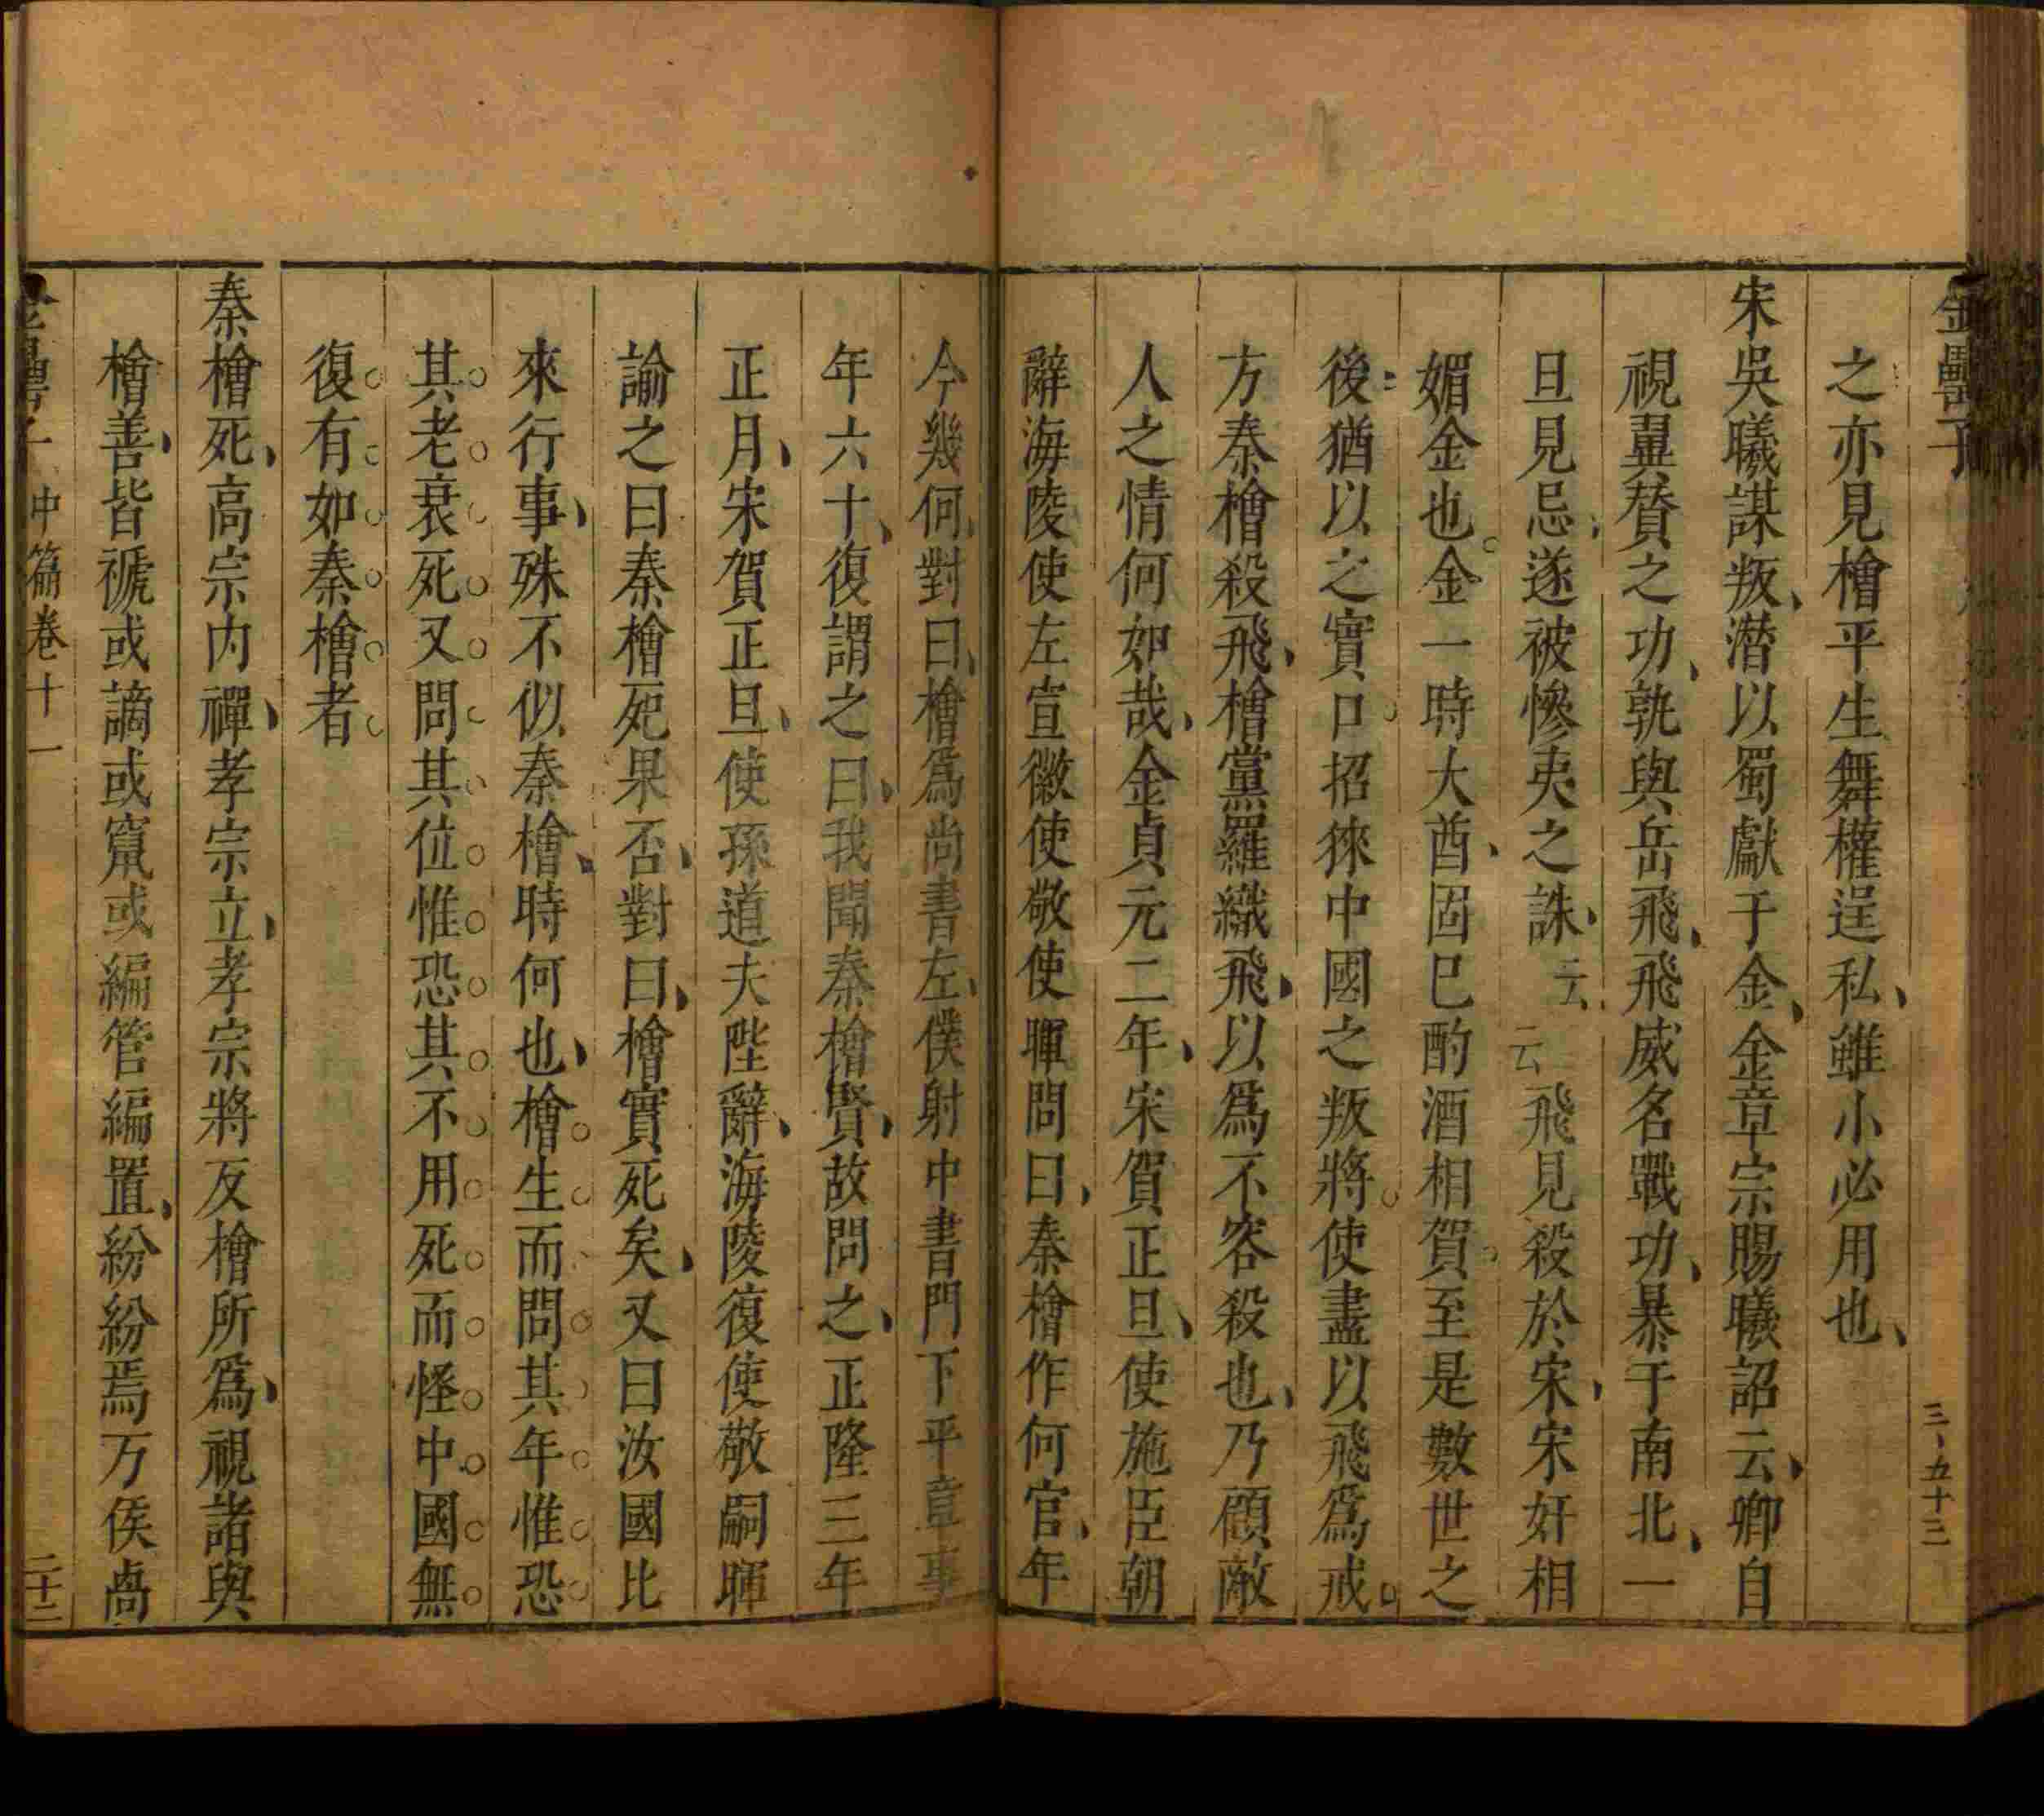 金罍子
三、五十三
之亦見檜平生舞權逞私、雖小必用也、
宋吳曦謀叛、潛以蜀獻于金、金章宗賜曦詔云、卿自
視翼贊之功、孰與岳飛、飛威名戰功、暴于南北、一
旦見忌、遂被慘夷之誅、云云飛見殺於宋、宋奸相
媚金也。金一時大酋、固巳酌酒相賀。至是數世之
後、猶以之實口招徠中國之叛將。使盡以飛爲戒。
方秦檜殺飛、檜黨羅織飛、以爲不容殺也、乃顧敵
人之情何如哉、金貞元二年、宋賀正旦、使施臣朝
辭海陵使左宣徽使敬使暉問曰、秦檜作何官、年
今幾何、對曰、檜爲尚書左、僕射中書門下平章事
年六十、復謂之曰、我聞秦檜賢、故問之、正隆三年
正月、宋賀正旦、使孫道夫陛辭、海陵復使敬嗣暉
諭之曰秦檜死果否、對曰、檜實死矣、又曰汝國比
來行事、殊不似秦檜、時何也、檜生而問其年惟恐
其老衰死又問其位惟恐其不用死而怪中國無
復有如秦檜者
秦檜死、高宗内禪、孝宗立、孝宗將反檜所爲、視諸與
檜善、皆褫或謫或竄或編管編置、紛紛焉万俟卨
金罍子 中篇卷十一
二十二